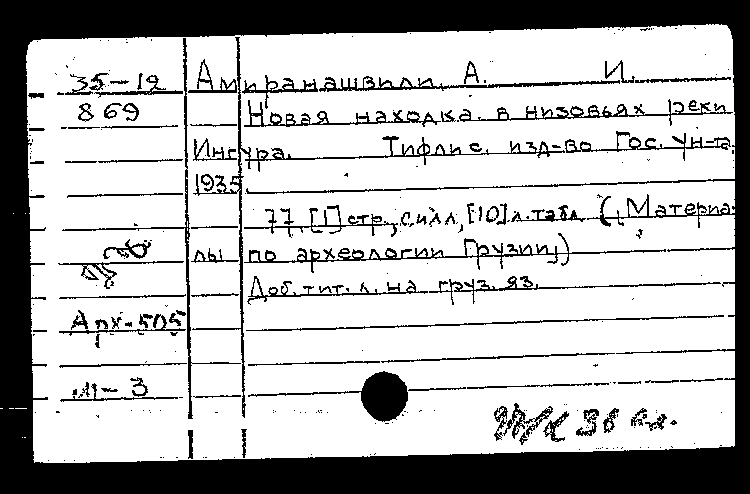 35-12 Амиранашвили, А. И.
869 Новая находка в низовьях реки
Ингура. Тифлис, изд-во Гос. ун-та,
1935.
77, [1] стр., с илл., [10] л. табл. („Материа-
лы по археологии Грузии„)
Доб. тит. л. на груз. яз.
Арх-505
М-3
36